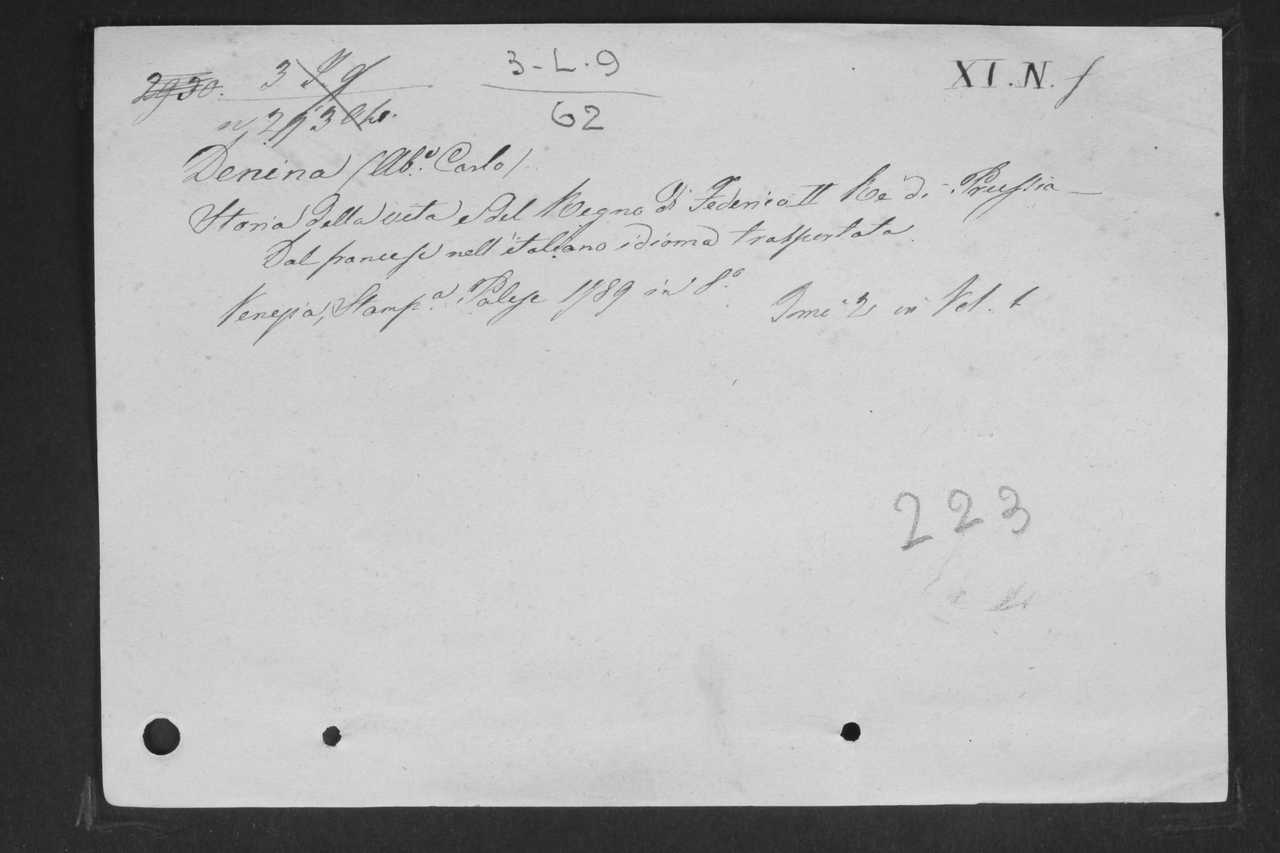 2930. 3 3-L.9 XI.N.f
62
Denina (Ab.e Carlo)
Storia della vita e del Regno di Federico II Re di Prussia
Dal francese nell'italiano idioma trasportata.
Venezia, Stamp.a Palese 1789 in 8.o Tomi 2 in Vol. 1
223